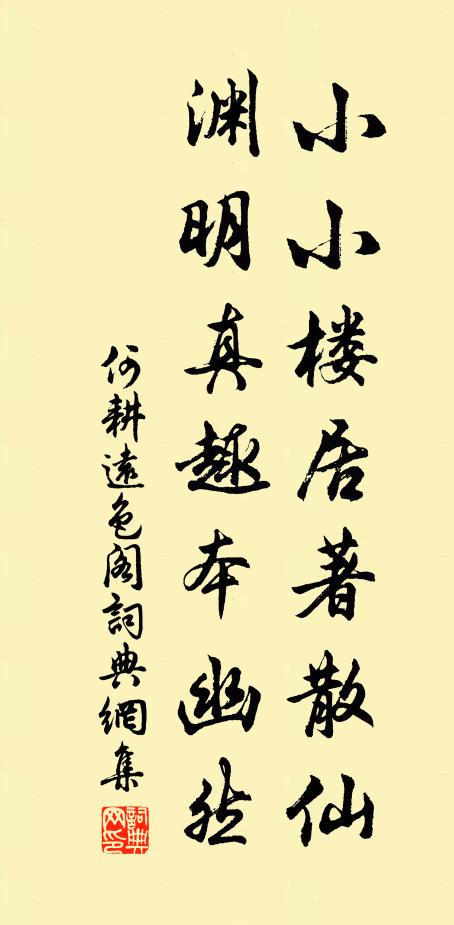 小小楼居著散仙
渊明真趣本幽然
何耕遠色阁詞典網集
詞典网印